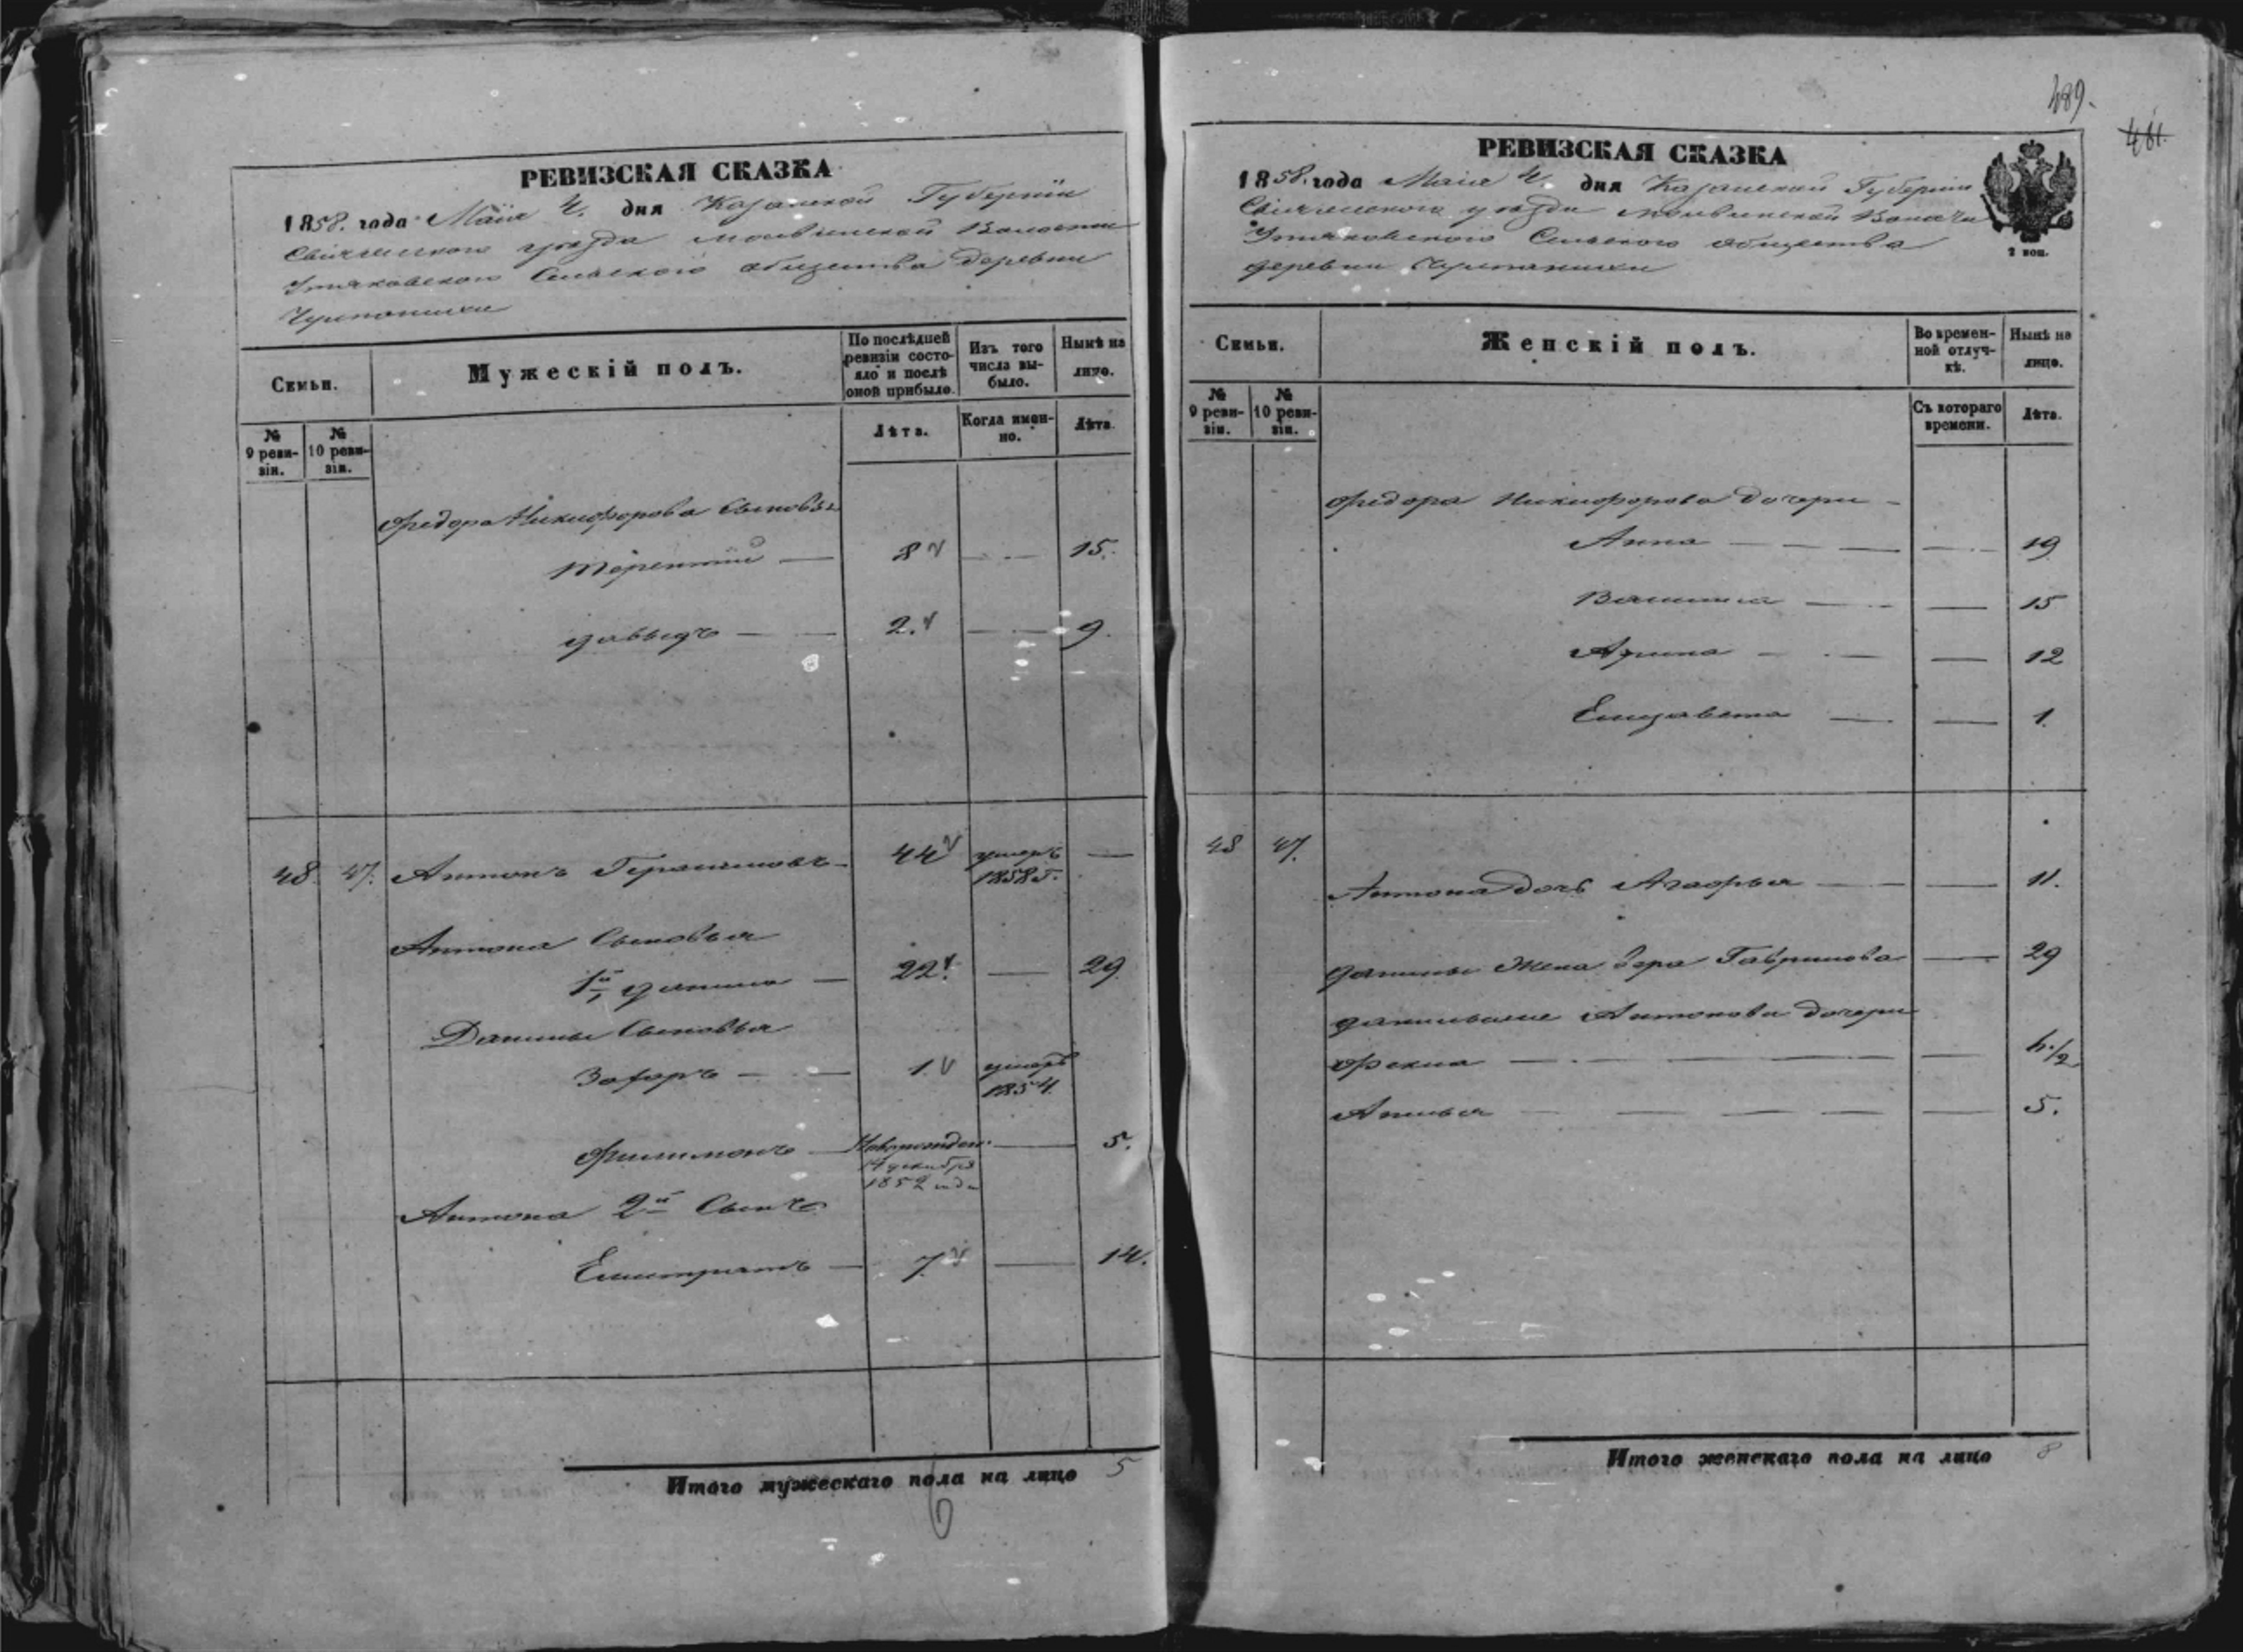 РЕВИЗСКАЯ СКАЗКА
1858. года Маія 4. дня Казанской Губерніи
Свіяжскаго уѣзда Волости
Сельскаго общества деревни
Семьи.
Мужескій полъ.
По послѣдней ревизіи состояло и послѣ оной прибыло.
Изъ того числа выбыло.
Нынѣ на лицо.
№ 9 ревизіи.
№ 10 ревизіи.
Лѣта.
Когда именно.
Лѣта.
Федора Никифорова Сыновья
Терентій — 8 — 15.
Давыдъ — 2. — 9.
48. 47. Антонъ Герасимовъ — 44 умеръ 1858 г. —
Антона Сыновья
1й Данила — 22. — 29
Данилы Сыновья
Захаръ — 1. умеръ 1854.
Филимонъ — Новорожден. 14 декабря 1852 года — 5.
Антона 2й Сынъ
Елистратъ — 7 — 14.
Итого мужескаго пола на лицо 5
6
489.
481.
РЕВИЗСКАЯ СКАЗКА
2 коп.
1858. года Маія 4. дня Казанской Губерніи
Свіяжскаго уѣзда Волости
Сельскаго общества
деревни
Семьи.
Женскій полъ.
Во временной отлучкѣ.
Нынѣ на лицо.
№ 9 ревизіи.
№ 10 ревизіи.
Съ котораго времени.
Лѣта.
Федора Никифорова дочери —
Анна — — — — 19
15
Арина — — — 12
Елизавета — — 1.
48 47.
Антона дочь Агафья — — 11.
Данилы Жена Вера Гаврилова — 29
Антонова дочери
Фекла — — — —
— — — — — 5.
Итого женскаго пола на лицо 8